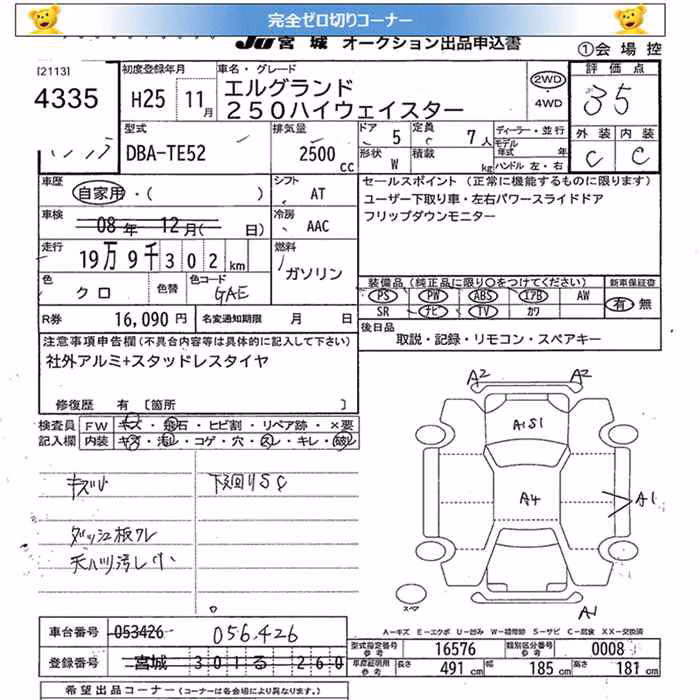 完全ゼロ切りコーナー
JU 宮城 オークション出品申込書
①会場控
[2113]
4335
初度登録年月
H25 11月
車名・グレード
エルグランド
250ハイウェイスター
2WD
・4WD
評価点
35
外装 内装
C C
型式
DBA-TE52
排気量
2500 cc
ドア 5
定員 7人
形状 W
積載 kg
ディーラー・並行
モデル年式 年式
ハンドル 左・右
車歴
自家用・( )
シフト
AT
セールスポイント (正常に機能するものに限ります)
ユーザー下取り車・左右パワースライドドア
フリップダウンモニター
車検
08年 12月( 日)
冷房
AAC
走行
19万9千302km
燃料
ガソリン
色
クロ
色替
色コード
GAE
装備品 (純正品に限り○をつけてください)
新車保証書
PS PW ABS エアB AW
SR ナビ TV カワ
有・無
R券 16,090 円
名変通知期限 月 日
後日品
取説・記録・リモコン・スペアキー
注意事項申告欄(不具合内容等は具体的に記入して下さい)
社外アルミ+スタッドレスタイヤ
修復歴 有 [箇所 ]
検査員記入欄
FW キズ・飛石・ヒビ割・リペア跡・×要
内装 キズ・汚レ・コゲ・穴・スレ・キレ・破レ
下廻りSC
天バリ汚レ
A2 A2
A1S1
A4
A1
A1
スペア
A-キズ E-エクボ U-凹み W-補修跡 S-サビ C-腐食 XX-交換済
車台番号 053426 056426
登録番号 宮城 301る 260
型式指定番号 参考 16576
類別区分番号 参考 0008
車庫証明用 参考 長さ 491 cm 幅 185 cm 高さ 181 cm
希望出品コーナー (コーナーは各会場により異なります。)